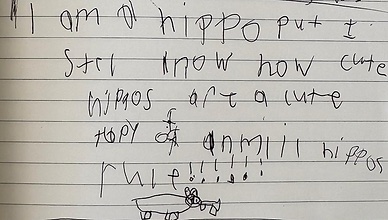 I am a hippo put I
Stil know how cute
hippos are a cute
topy of anmill hippos
rule!!!!!!